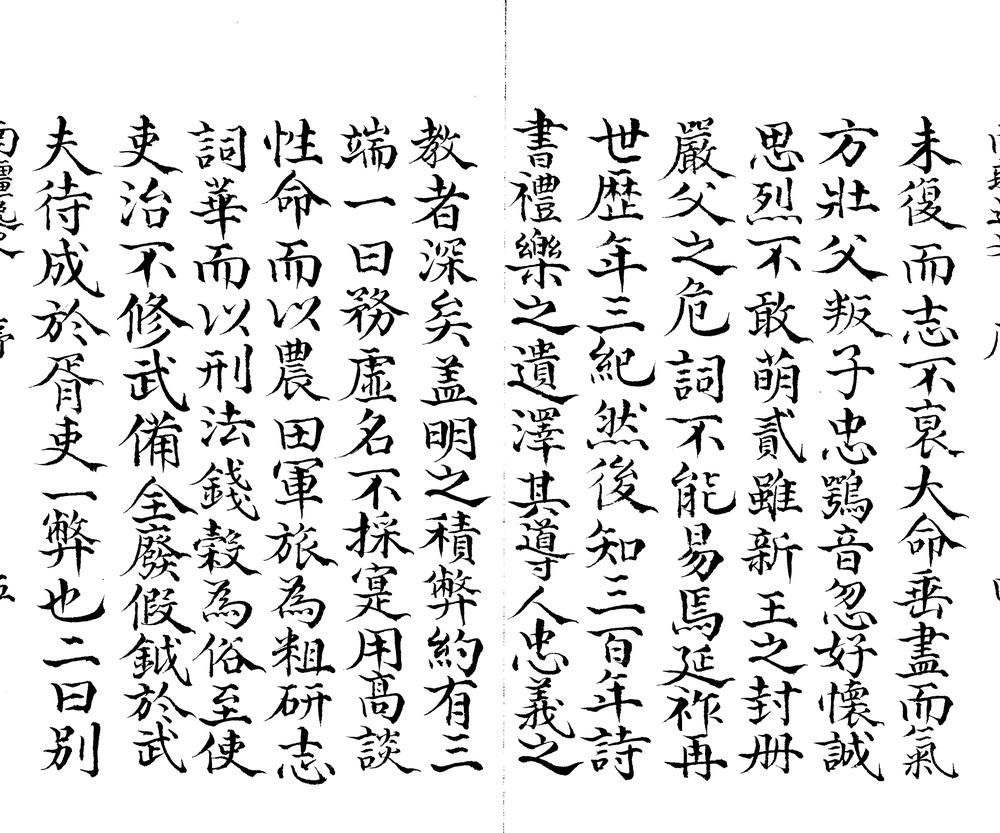 未復而志不衰大命垂盡而氣
方壯父叛子忠鴞音忽好懷誠
思烈不敢萌貳雖新王之封册
嚴父之危詞不能易焉延祚再
世歷年三紀然後知三百年詩
書禮樂之遺澤其導人忠義之
教者深矣盖明之積弊約有三
端一曰務虛名不採寔用高談
性命而以農田軍旅為粗研志
詞華而以刑法錢穀為俗至使
吏治不修武備全廢假鉞於武
夫待成於胥吏一弊也二曰别
南疆逸史 序 五